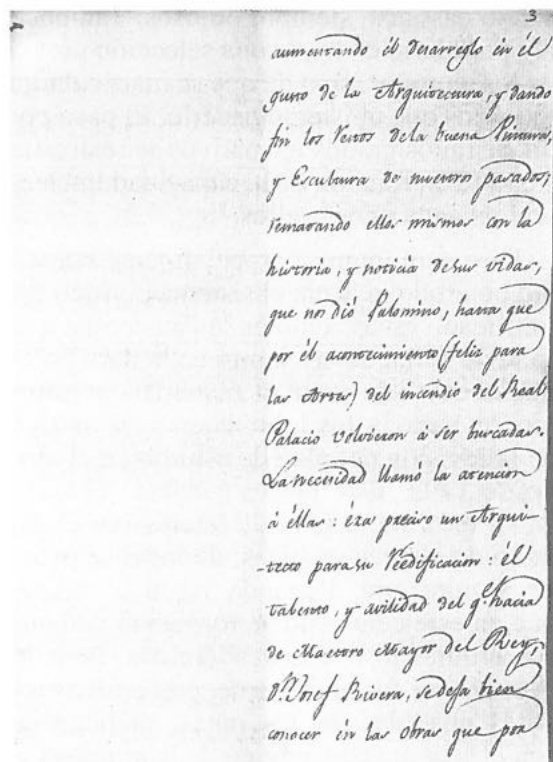 3
aumentando él desarreglo en él
gusto de la Arquitectura, y dando
fin los restos de la buena Pintura,
y Escultura de nuestros pasados;
rematando ellos mismos con la
historia, y noticia de sus vidas,
que nos dió Palomino, hasta que
por él acontecimiento (feliz para
las Artes) del incendio del Real
Palacio volvieron á ser buscadas.
La necesidad llamó la atencion
á éllas: éra preciso un Arqui-
tecto para su reedificacion: él
talento, y avilidad del q.e hacia
de Maestro Mayor del Rey,
D.n Josef Rivera, se deja bien
conocer én las obras que por